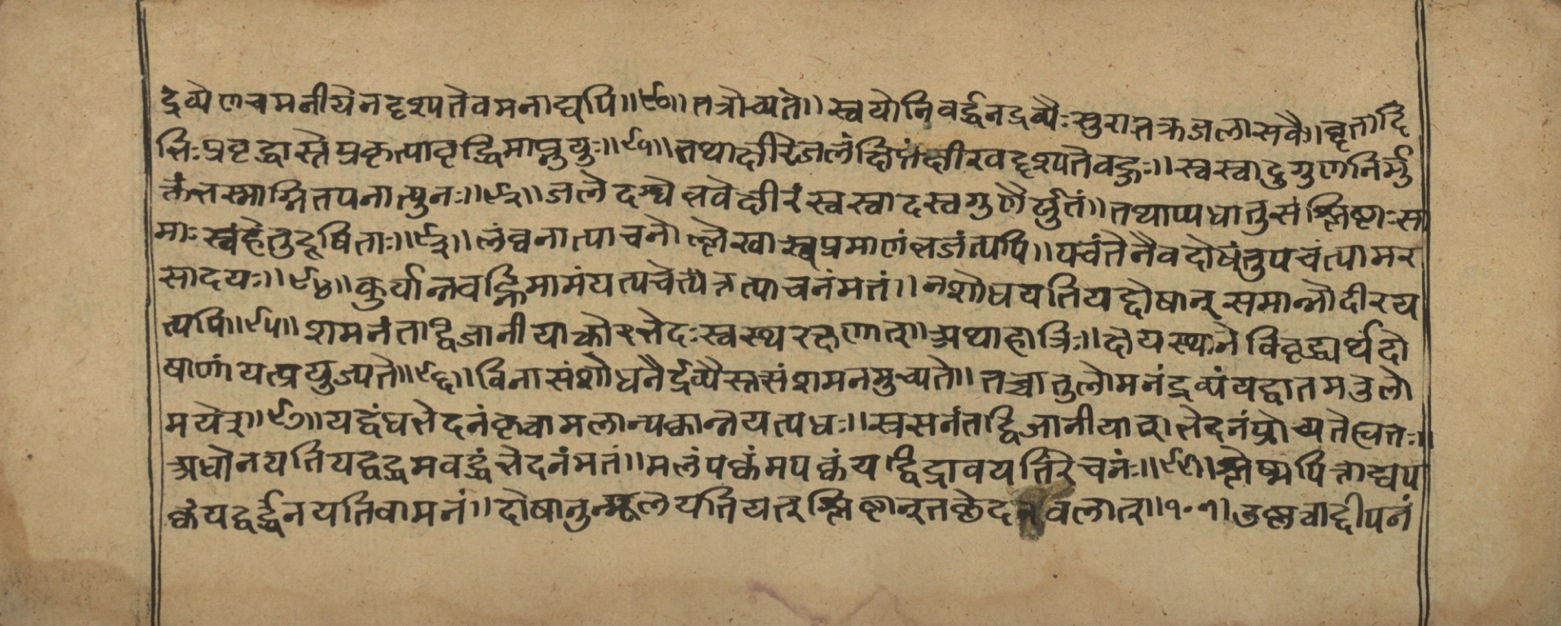 द्रव्येणचमनीयेनदृश्यतेवमनाद्यपि॥९०॥तत्रोच्यते॥स्वयोनिवर्द्धनद्रव्यैःसुरातक्रजलासवैः।घृतादि
भिःप्रवृद्धास्तेप्रकृत्यावृद्धिमाप्नुयुः॥९१॥तथाक्षीरेजलंक्षिप्तंक्षीरवदृश्यतेवहुः॥स्वस्वादुगुणनिर्मु
क्तंतस्माग्नितपनात्पुनः॥९२॥जलेदग्धेभवेक्षीरंस्वस्वादस्वगुणैर्युतं॥तथाप्यधातुसंश्लिष्टाःसा
माःस्वंहेतुदूषिताः॥९३॥लंघनात्पाचनोल्लेखास्वप्रमाणंभजंत्यपि॥पचंतेनैवदोषंतुपचंत्यामर
सादयः॥९४॥कुर्यान्नवह्निमामंयत्पचेत्येतत्पाचनंमतं॥नशोधयतियद्दोषान्समान्नोदीरय
त्यपि॥९५॥शमनंताद्विजानीयाक्रोरभेदःस्वस्थरक्षणात्॥अथाहात्रिः॥क्षेयस्थानेविवृद्ध्यर्थंदो
षाणांयत्प्रयुज्यते॥९६॥विनासंशोधनैर्द्रव्यैस्तसंशमनमुच्यते॥तच्चातुलोमनंद्रव्यंयद्वातमनुलो
मयेत्॥९७॥यद्वंधभेदनंकृत्वामलान्पक्वान्नयत्पधः॥स्रसनंतद्विजानीयात्भेदनंप्रोच्यतेत्वतः॥
अधोनयतियद्वद्धमवद्धंभेदनंमतं॥मलंपक्वंमपक्वंयद्विद्रावयतिरेचनं॥९९॥श्लेष्मपित्ताद्यप
क्वंयद्वर्द्धनयतिवामनं॥दोषानुन्मूलयतियत्श्लिष्टान्तछेद वलात्॥१०१॥उष्णत्वाद्दीपनं